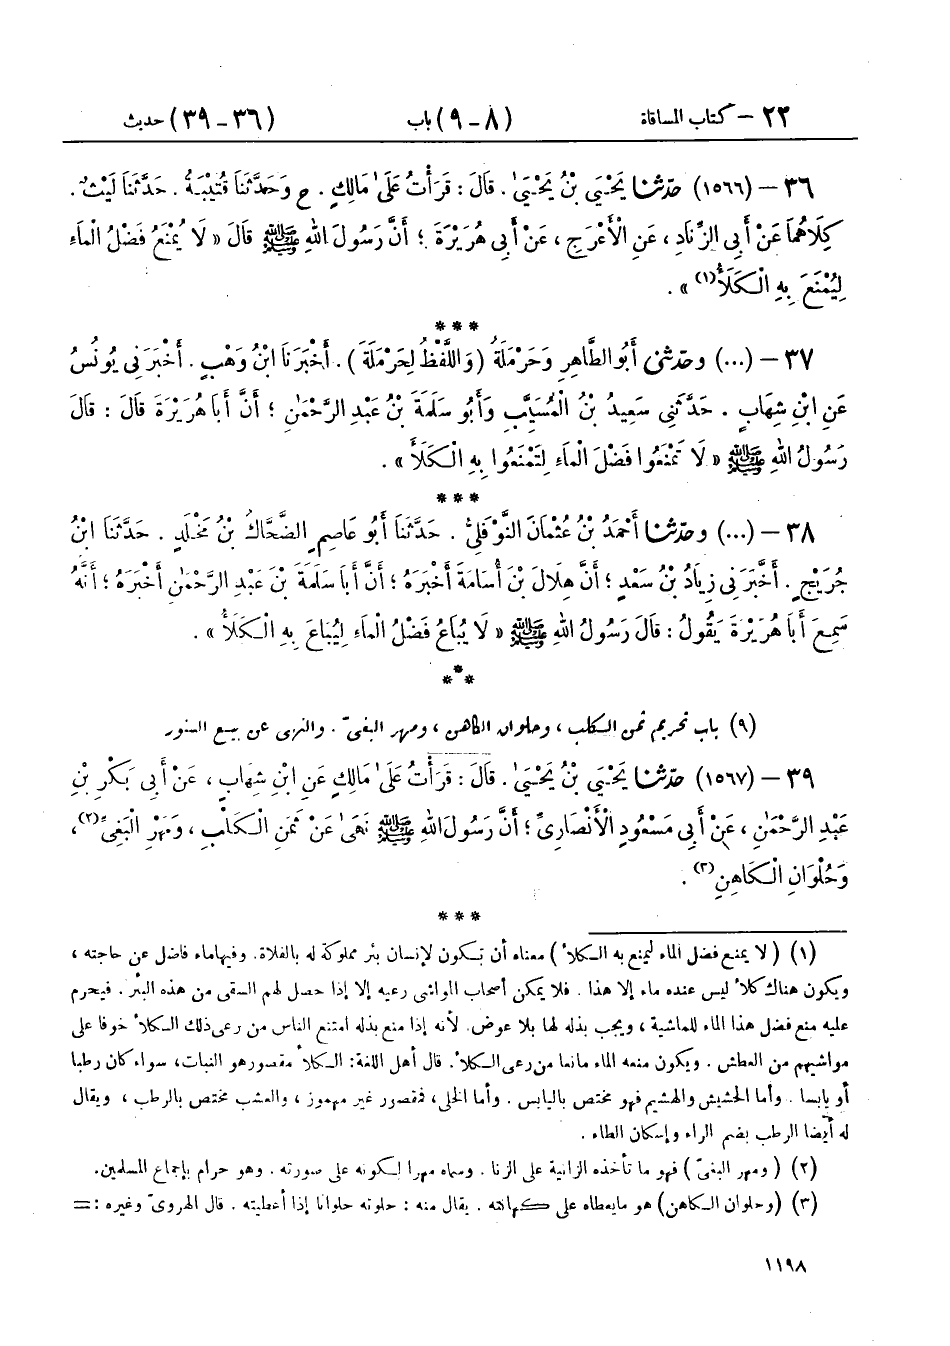 ٢٢ – كتاب المساقاة (٨ – ٩) باب (٣٦ – ٣٩) حديث
٣٦ – (١٥٦٦) حدّثنا يَحْيَىٰ بْنُ يَحْيَىٰ . قَالَ : قَرَأْتُ عَلَىٰ مَالِكٍ . ح وَحَدَّثَنَا قُتَيْبَةُ . حَدَّثَنَا لَيْثٌ .
كِلَاهُمَا عَنْ أَبِي الزِّنَادِ ، عَنِ الْأَعْرَجِ ، عَنْ أَبِي هُرَيْرَةَ ؛ أَنَّ رَسُولَ اللهِ ﷺ قَالَ « لَا يُمْنَعُ فَضْلُ الْمَاءِ
لِيُمْنَعَ بِهِ الْكَلَأُ (١) » .
***
٣٧ – (...) وحدّثني أَبُو الطَّاهِرِ وَحَرْمَلَةُ (وَاللَّفْظُ لِحَرْمَلَةَ) . أَخْبَرَنَا ابْنُ وَهْبٍ . أَخْبَرَنِي يُونُسُ
عَنِ ابْنِ شِهَابٍ . حَدَّثَنِي سَعِيدُ بْنُ الْمُسَيَّبِ وَأَبُو سَلَمَةَ بْنُ عَبْدِ الرَّحْمَٰنِ ؛ أَنَّ أَبَا هُرَيْرَةَ قَالَ : قَالَ
رَسُولُ اللهِ ﷺ « لَا تَمْنَعُوا فَضْلَ الْمَاءِ لِتَمْنَعُوا بِهِ الْكَلَأَ » .
***
٣٨ – (...) وحدّثنا أَحْمَدُ بْنُ عُثْمَانَ النَّوْفَلِيُّ . حَدَّثَنَا أَبُو عَاصِمٍ الضَّحَّاكُ بْنُ مَخْلَدٍ . حَدَّثَنَا ابْنُ
جُرَيْجٍ . أَخْبَرَنِي زِيَادُ بْنُ سَعْدٍ ؛ أَنَّ هِلَالَ بْنَ أُسَامَةَ أَخْبَرَهُ ؛ أَنَّ أَبَا سَلَمَةَ بْنَ عَبْدِ الرَّحْمَٰنِ أَخْبَرَهُ ؛ أَنَّهُ
سَمِعَ أَبَا هُرَيْرَةَ يَقُولُ : قَالَ رَسُولُ اللهِ ﷺ « لَا يُبَاعُ فَضْلُ الْمَاءِ لِيُبَاعَ بِهِ الْكَلَأُ » .
***
(٩) باب تحريم ثمن الكلب ، وحلوان الكاهن ، ومهر البغيّ . والنهى عن بيع السنور
٣٩ – (١٥٦٧) حدّثنا يَحْيَىٰ بْنُ يَحْيَىٰ . قَالَ : قَرَأْتُ عَلَىٰ مَالِكٍ عَنِ ابْنِ شِهَابٍ ، عَنْ أَبِي بَكْرِ بْنِ
عَبْدِ الرَّحْمَٰنِ ، عَنْ أَبِي مَسْعُودٍ الْأَنْصَارِيِّ ؛ أَنَّ رَسُولَ اللهِ ﷺ نَهَىٰ عَنْ ثَمَنِ الْكَلْبِ ، وَمَهْرِ الْبَغِيِّ (٢) ،
وَحُلْوَانِ الْكَاهِنِ (٣) .
***
(١) ( لا يمنع فضل الماء ليمنع به الكلأ ) معناه أن تكون لإنسان بئر مملوكة له بالفلاة . وفيها ماء فاضل عن حاجته ،
ويكون هناك كلأ ليس عنده ماء إلا هذا . فلا يمكن أصحاب المواشى رعيه إلا إذا حصل لهم السقى من هذه البئر . فيحرم
عليه منع فضل هذا الماء للماشية ، ويجب بذله لها بلا عوض . لأنه إذا منع بذله امتنع الناس من رعى ذلك الكلأ خوفا على
مواشيهم من العطش . ويكون منعه الماء مانعا من رعى الكلأ . قال أهل اللغة : الكلأ مقصور هو النبات ، سواء كان رطبا
أو يابسا . وأما الحشيش والهشيم فهو مختص باليابس . وأما الخلى ، فمقصور غير مهموز ، والعشب مختص بالرطب ، ويقال
له أيضا الرطب بضم الراء وإسكان الطاء .
(٢) ( ومهر البغيّ ) فهو ما تأخذه الزانية على الزنا . وسماه مهرا لكونه على صورته . وهو حرام بإجماع المسلمين .
(٣) (وحلوان الكاهن) هو ما يعطاه على كهانته . يقال منه : حلوته حلوانا إذا أعطيته . قال الهروىّ وغيره : =
١١٩٨